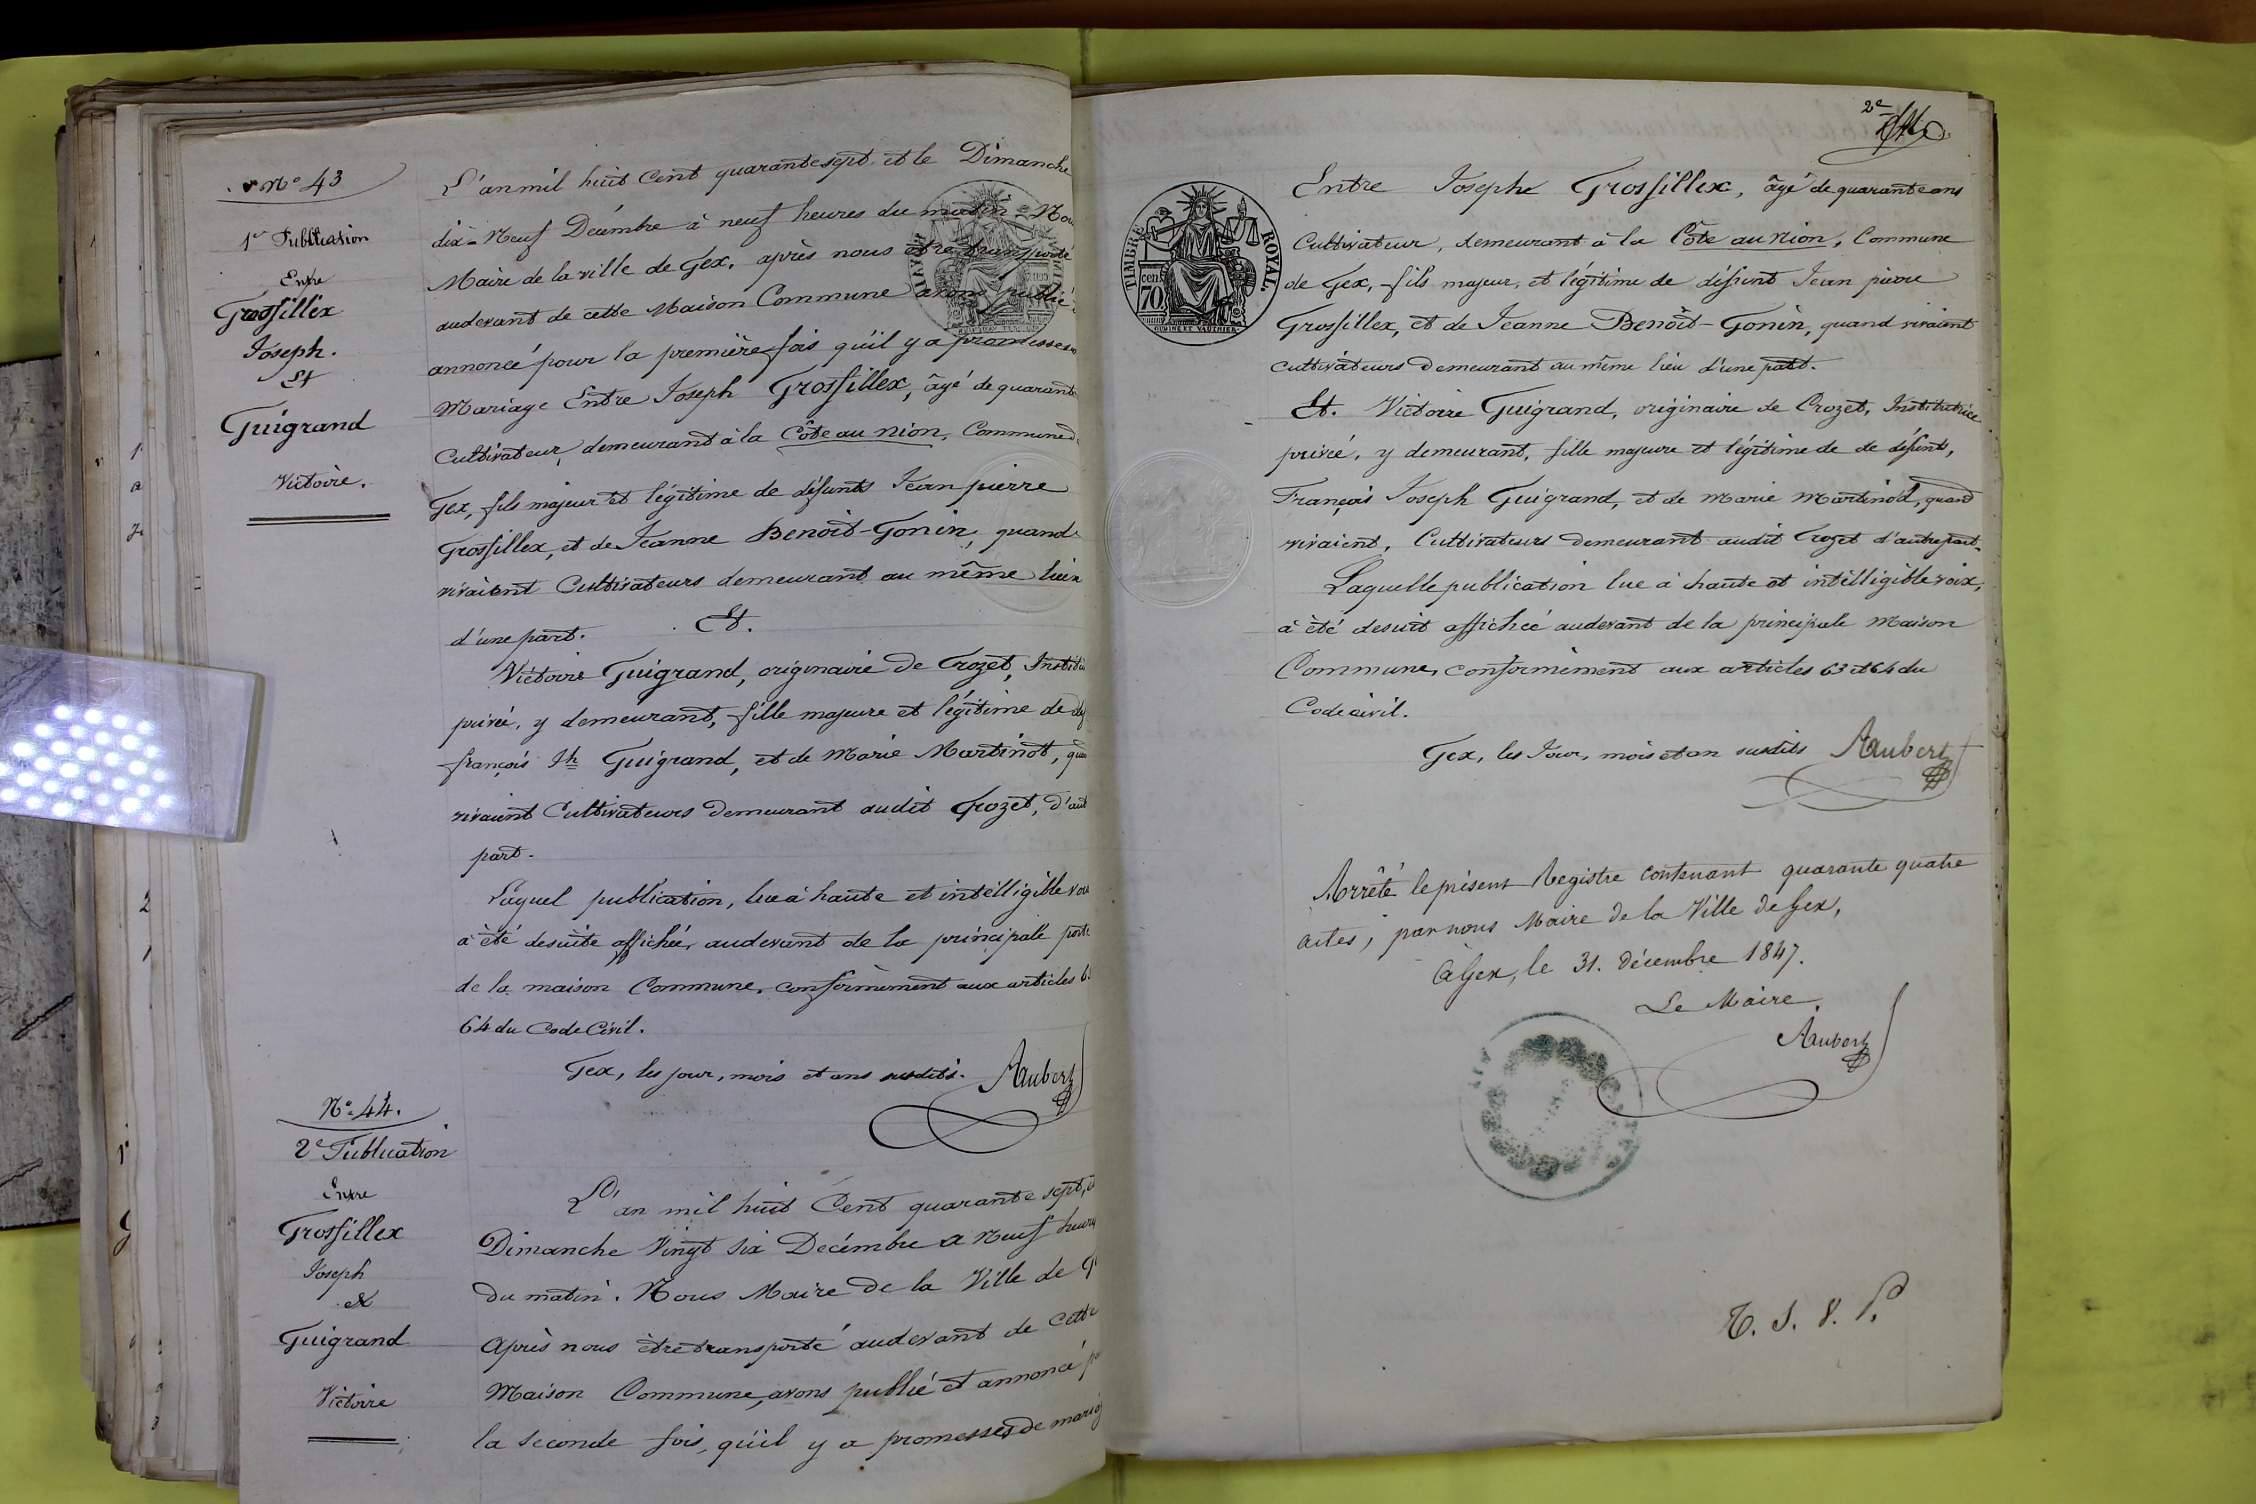 N° 43
1re Publication
Entre
Grosfillex
Joseph.
Et
Guigrand
Victoire.
L'an mil huit Cent quarante sept et le Dimanche
dix-Neuf Décembre à neuf heures du matin Nous
Maire de la ville de Gex, après nous être transporté
audevant de cette Maison Commune avons publié
annoncé pour la première fois qu'il y a promesses
Mariage Entre Joseph Grosfillex, âgé de quarante
Cultivateur, demeurant à la Côte au nion, Commune d
Gex, fils majeur et légitime de défunts Jean pierre
Grosfillex, et de Jeanne Benoit-Gonin, quand
vivaient Cultivateurs demeurant au même lieu
d'une part. Et.
Victoire Guigrand, originaire de Crozet, Institu
privé, y demeurant, fille majeure et légitime de déf
françois Jh Guigrand, et de Marie Martinot, qua
vivaient Cultivateurs demeurant audit Crozet, d'aut
part.
Laquel publication, lue à haute et intélligible voix
a été desuite affichée, audevant de la principale porte
de la maison Commune, conformément aux articles 6
64 du Code Civil.
Gex, les jour, mois et ans susdits. Aubert
N° 44.
2e Publication
Entre
Grosfillex
Joseph
et
Guigrand
Victoire
L'an mil huit Cent quarante sept, et
Dimanche Vingt Six Decémbre a Neuf heures
du matin. Nous Maire de la Ville de G
Après nous être transporté audevant de Cette
Maison Commune, avons publié et annoncé p
la seconde fois, qu'il y a promesses de mariag
2e
TIMBRE ROYAL.
70 cen
Entre Joseph Grosfillex, âgé de quarante ans
Cultivateur, demeurant à la Côte au nion, Commune
de Gex, fils majeur, et légitime de défunt Jean pierre
Grosfillex, et de Jeanne Benoît-Gonin, quand vivaient
cultivateurs demeurant au même lieu d'une part.
Et. Victoire Guigrand, originaire de Crozet, Institutrice
privée, y demeurant, fille majeure et légitime de de défunt,
François Joseph Guigrand, et de Marie Martinod, quand
vivaient, Cultivateurs demeurant audit Crozet d'autre part.
Laquelle publication lue à haute et intélligible voix,
a été desuit affichée audevant de la principale Maison
Commune, conformément aux articles 63 et 64 du
Code civil.
Gex, les Jour, mois et an susdits Aubert
Arrêté le présent Registre contenant quarante quatre
actes, par nous Maire de la Ville de Gex,
à Gex, le 31. décembre 1847.
Le Maire,
Aubert
T. S. V. P.